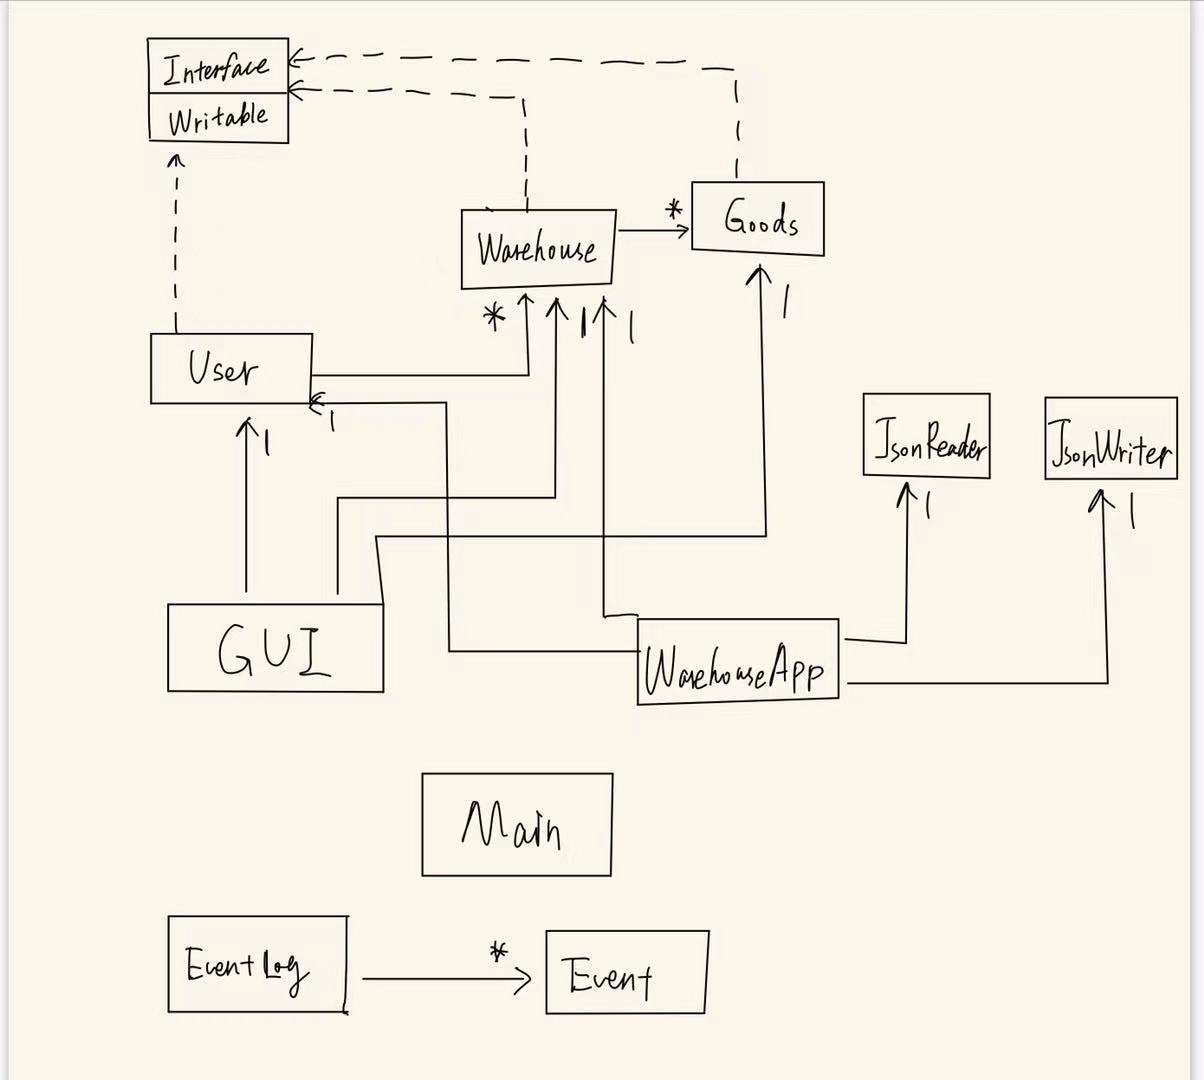 Interface
Writable
*
Goods
Warehouse
*
1
1
1
User
1
1
JsonReader
JsonWriter
1
1
GUI
WarehouseApp
Main
EventLog
*
Event